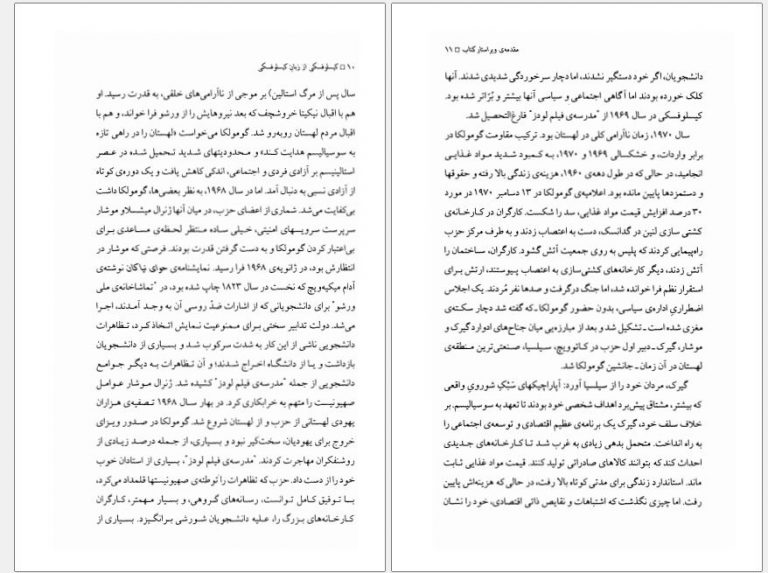 ۱۰ □ کیسلوفسکی از زبان کیسلوفسکی
سال پس از مرگ استالین) بر موجی از ناآرامی‌های خلقی، به قدرت رسید. او
هم با اقبال نیکیتا خروشچف که بعد نیروهایش را از ورشو فرا خواند، و هم با
اقبال مردم لهستان روبه‌رو شد. گومولکا می‌خواست «لهستان را در راهی تازه
به سوسیالیسم هدایت کند» و محدودیتهای شدید تحمیل شده در عصر
استالینیسم بر آزادی فردی و اجتماعی، اندکی کاهش یافت و یک دوره‌ی کوتاه
از آزادی نسبی به دنبال آمد. اما در سال ۱۹۶۸، به نظر بعضی‌ها، گومولکا داشت
بی‌کفایت می‌شد. شماری از اعضای حزب، در میان آنها ژنرال میشلاو موشار
سرپرست سرویسهای امنیتی، خیلی ساده منتظر لحظه‌ی مساعدی برای
بی‌اعتبار کردن گومولکا و به دست گرفتن قدرت بودند. فرصتی که موشار در
انتظارش بود، در ژانویه‌ی ۱۹۶۸ فرا رسید. نمایشنامه‌ی حوای نیاکان نوشته‌ی
آدام میکیه‌ویچ که نخست در سال ۱۸۲۳ چاپ شده بود، در "تماشاخانه‌ی ملی
ورشو" برای دانشجویانی که از اشارات ضدّ روسی آن به وجد آمدند، اجرا
می‌شد. دولت تدابیر سختی برای ممنوعیت نمایش اتخاذ کرد، تظاهرات
دانشجویی ناشی از این کار به شدت سرکوب شد و بسیاری از دانشجویان
بازداشت و یا از دانشگاه اخراج شدند؛ و آن تظاهرات به دیگر جوامع
دانشجویی از جمله "مدرسه‌ی فیلم لودز" کشیده شد. ژنرال موشار عوامل
صهیونیست را متهم به خرابکاری کرد. در بهار سال ۱۹۶۸ تصفیه‌ی هزاران
یهودی لهستانی از حزب و از لهستان شروع شد. گومولکا در صدور ویزای
خروج برای یهودیان، سخت‌گیر نبود و بسیاری، از جمله درصد زیادی از
روشنفکران مهاجرت کردند. "مدرسه‌ی فیلم لودز"، بسیاری از استادان خوب
خود را از دست داد. حزب که تظاهرات را توطئه‌ی صهیونیستها قلمداد می‌کرد،
با توفیق کامل توانست، رسانه‌های گروهی، و بسیار مهمتر، کارگران
کارخانه‌های بزرگ را، علیه دانشجویان شورشی برانگیزد. بسیاری از
مقدمه‌ی ویراستار کتاب □ ۱۱
دانشجویان، اگر خود دستگیر نشدند، اما دچار سرخوردگی شدیدی شدند. آنها
کلک خورده بودند اما آگاهی اجتماعی و سیاسی آنها بیشتر و بُرّاتر شده بود.
کیسلوفسکی در سال ۱۹۶۹ از "مدرسه‌ی فیلم لودز" فارغ‌التحصیل شد.
سال ۱۹۷۰، زمان ناآرامی کلی در لهستان بود. ترکیب مقاومت گومولکا در
برابر واردات، و خشکسالی ۱۹۶۹ و ۱۹۷۰، به کمبود شدید مواد غذایی
انجامید، در حالی که در طول دهه‌ی ۱۹۶۰، هزینه‌ی زندگی بالا رفته و حقوقها
و دستمزدها پایین مانده بود. اعلامیه‌ی گومولکا در ۱۳ دسامبر ۱۹۷۰ در مورد
۳۰ درصد افزایش قیمت مواد غذایی، سد را شکست. کارگران در کارخانه‌ی
کشتی سازی لنین در گدانسک، دست به اعتصاب زدند و به طرف مرکز حزب
راه‌پیمایی کردند که پلیس به روی جمعیت آتش گشود. کارگران، ساختمان را
آتش زدند، دیگر کارخانه‌های کشتی‌سازی به اعتصاب پیوستند، ارتش برای
استقرار نظم فرا خوانده شد، اما جنگ درگرفت و صدها نفر مُردند. یک اجلاس
اضطراریِ اداره‌ی سیاسی، بدون حضور گومولکا ـ که گفته شد دچار سکته‌ی
مغزی شده است ـ تشکیل شد و بعد از مبارزه‌یی میان جناح‌های ادوارد گیرک و
موشار، گیرک ـ دبیر اول حزب در کاتوویچ، سیلسیا، صنعتی‌ترین منطقه‌ی
لهستان در آن زمان ـ جانشین گومولکا شد.
گیرک، مردان خود را از سیلسیا آورد: آپاراچیکهای سَبْکِ شورویِ واقعی
که بیشتر، مشتاق پیش‌برد اهداف شخصی خود بودند تا تعهد به سوسیالیسم. بر
خلاف سلف خود، گیرک یک برنامه‌ی عظیم اقتصادی و توسعه‌ی اجتماعی را
به راه انداخت. متحمل بدهی زیادی به غرب شد تا کارخانه‌های جدیدی
احداث کند که بتوانند کالاهای صادراتی تولید کنند. قیمت مواد غذایی ثابت
ماند. استاندارد زندگی برای مدتی کوتاه بالا رفت، در حالی که هزینه‌اش پایین
رفت. اما چیزی نگذشت که اشتباهات و نقایص ذاتی اقتصادی، خود را نشان